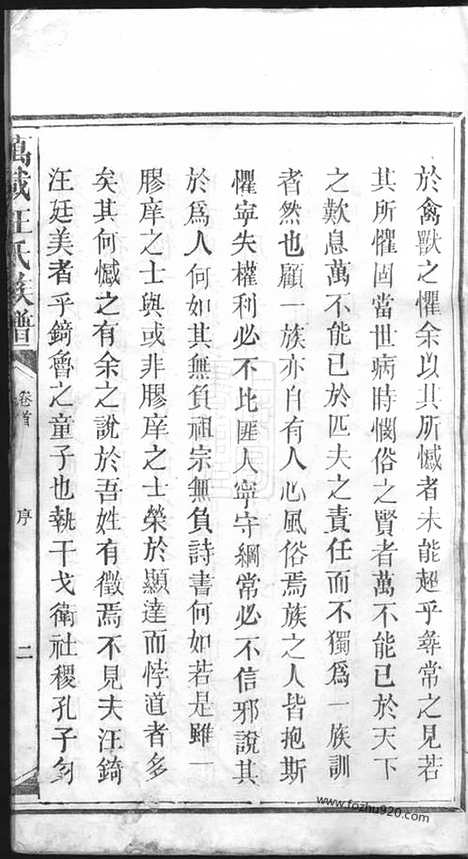 於禽獸之懼余以其所憾者未能超乎尋常之見若
其所懼固當世病時憫俗之賢者萬不能已於天下
之歎息萬不能已於匹夫之責任而不獨爲一族訓
者然也顧一族亦自有人心風俗焉族之人皆抱斯
懼寧失權利必不比匪人寧守綱常必不信邪說其
於爲人何如其無負祖宗無負詩書何如若是雖一
膠庠之士與或非膠庠之士榮於顯達而悖道者多
矣其何憾之有余之說於吾姓有徵焉不見夫汪錡
汪廷美者乎錡魯之童子也執干戈衛社稷孔子多
萬載汪氏族譜
卷首
序
二
www.fozhu920.com